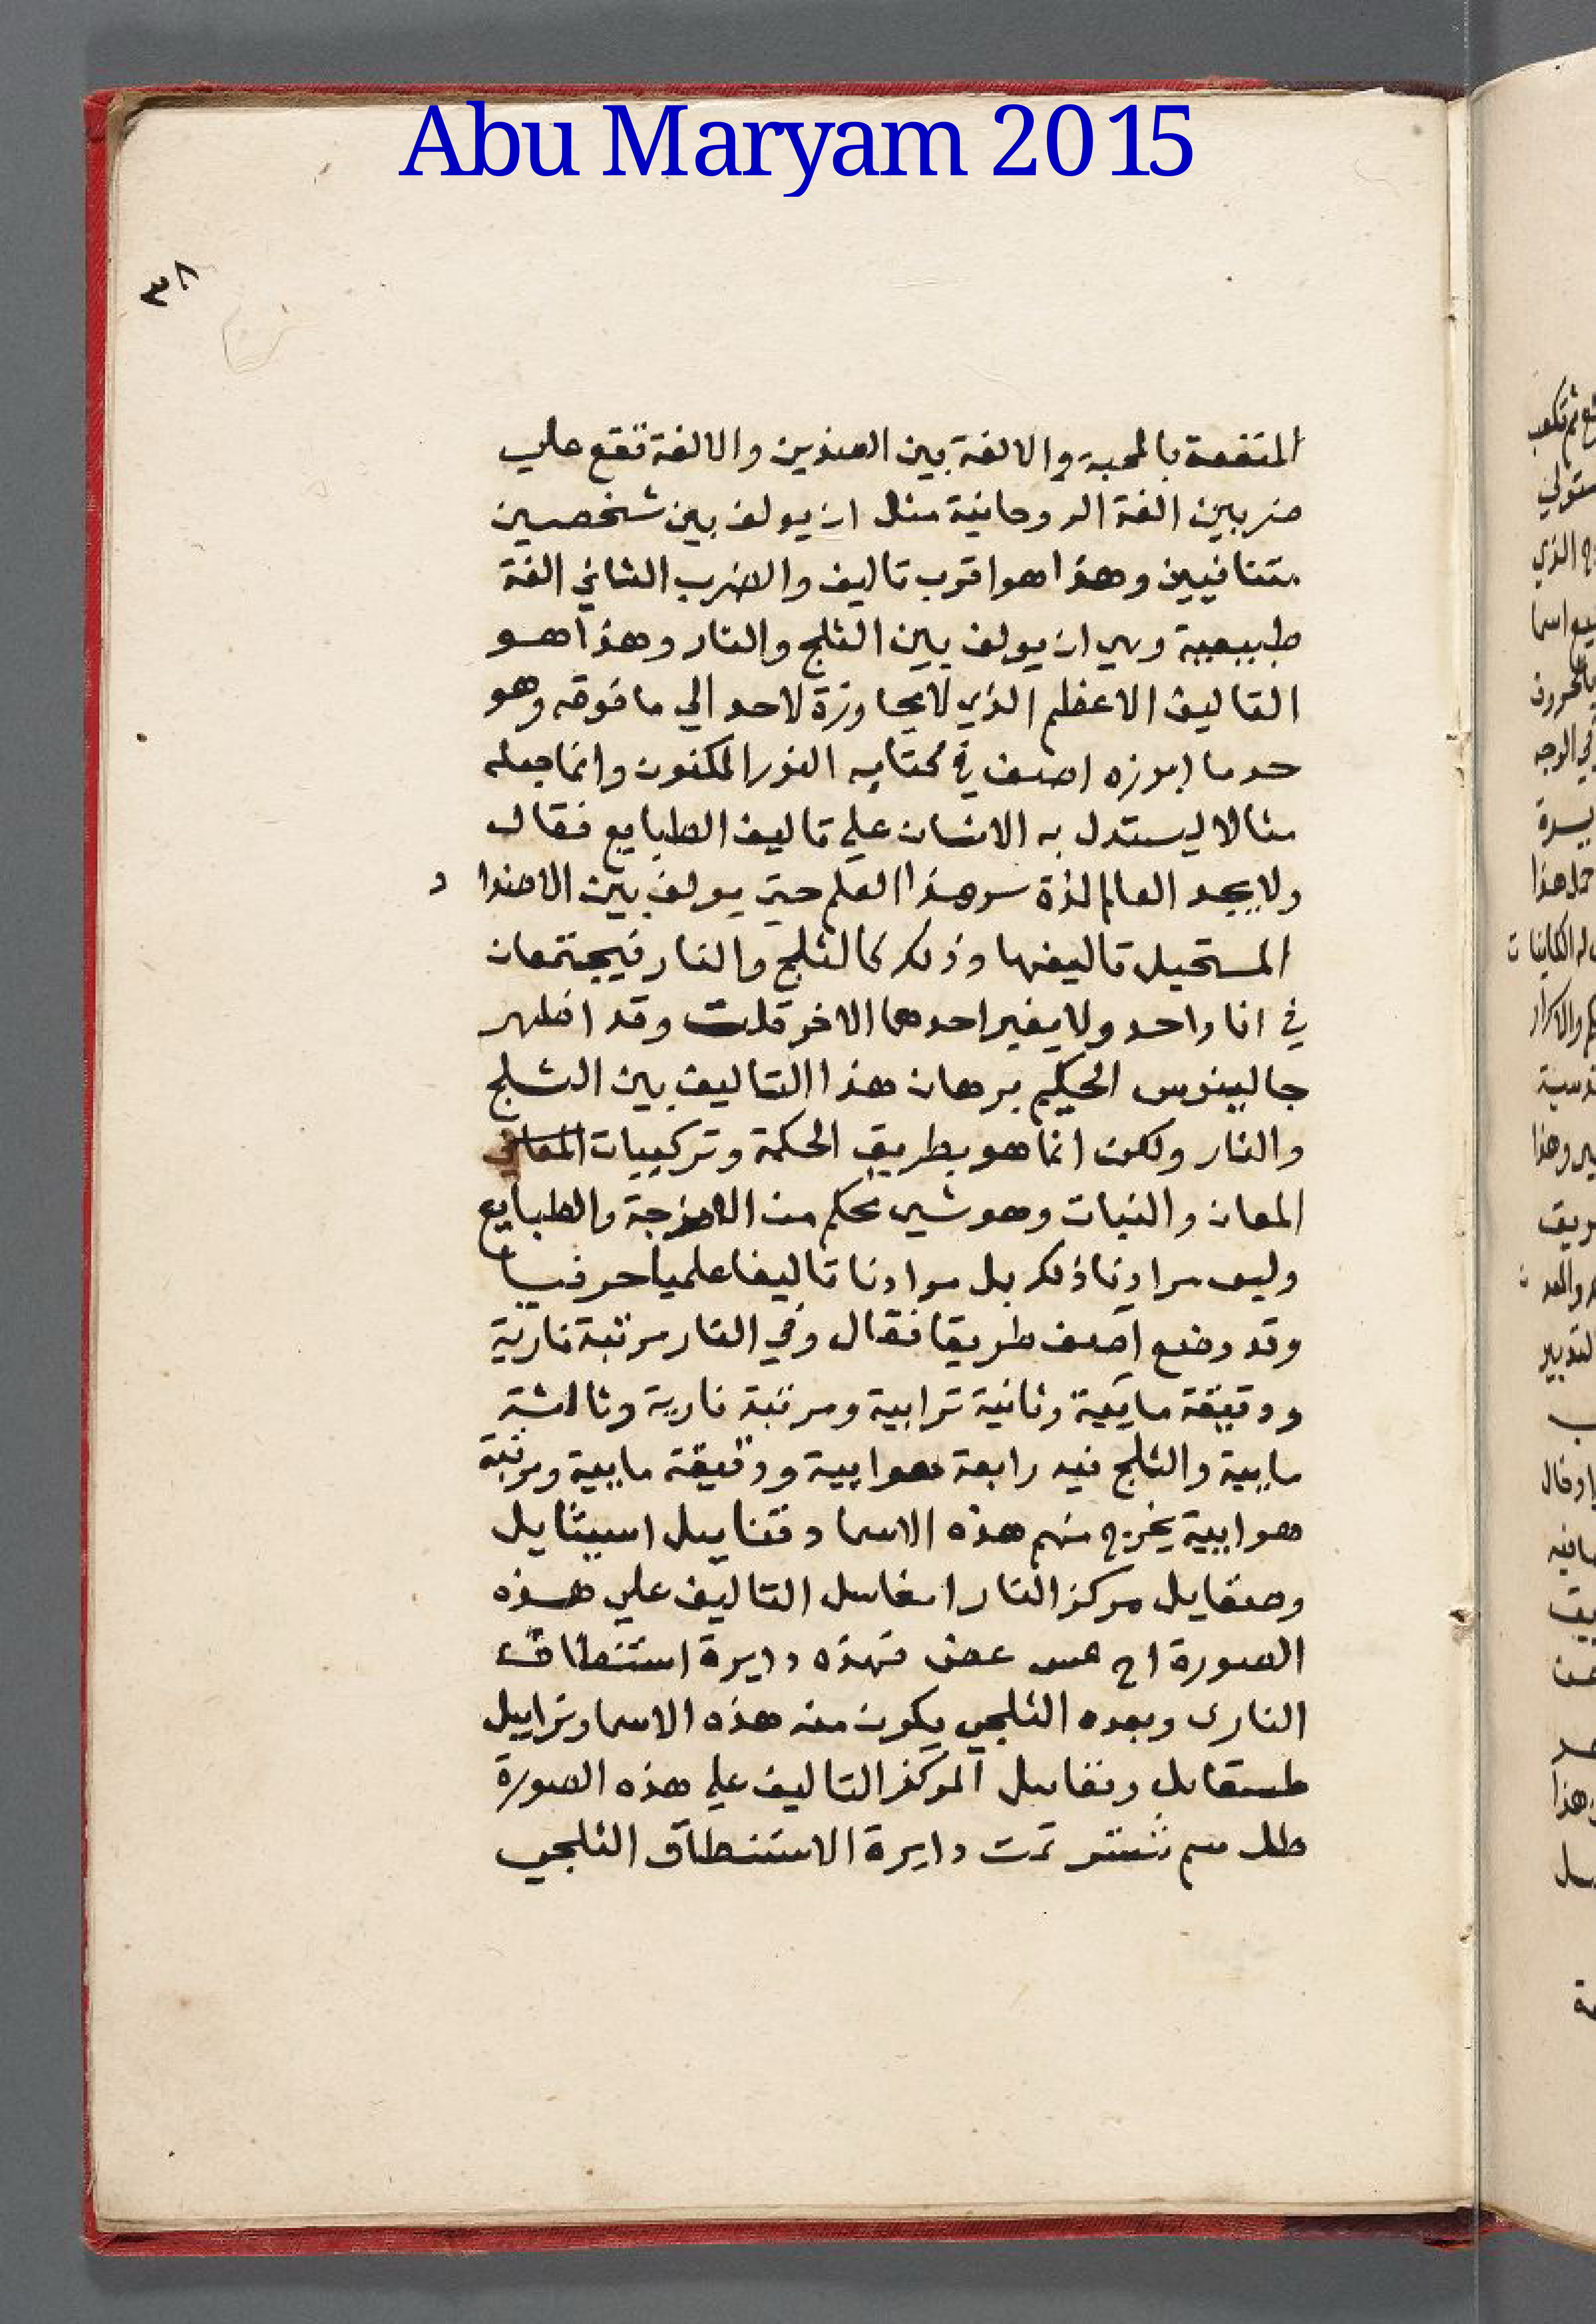 Abu Maryam 2015
٣٨
المتفعة بالمحبة والالفة بين الضدين والالفة تقع علي
ضربين الفة الروحانية مثل ان يولف بين شخصين
متنافيين وهذا هو اقرب تاليف والضرب الثاني الفة
طبيعية وهي ان يولف بين الثلج والنار وهذا هو
التاليف الاعظم الذي لا يجاوزة لاحد الي ما فوقه وهو
حد ما ابرزه اصف في كتابه النور المكنون وانما جعله
مثالا ليستدل به الانسان علي تاليف الطبايع فقال
ولا يجد العالم لذة سر هذا العلم حتي يولف بين الاضداد
المستحيل تاليفها وذلك كالثلج والنار فيجتمعان
في انا واحد ولا يغير احدهما الاخر قلت وقد اظهر
جالينوس الحكيم برهان هذا التاليف بين الثلج
والنار ولكن انما هو بطريق الحكمة وتركيبات المعاني
المعان والنبات وهو شي محكم من الامزجة والطبايع
وليس مرادنا ذلك بل مرادنا تاليفا علميا حرفيا
وقد وضع اصف طريقا فقال وفي النار مرتبة نارية
ودقيقة مايية وثانية ترابية ومرتبة نارية وثالثة
مايية والثلج فيه رابعة هوايية ودقيقة مايية ومرتبة
هوايية يخرج منهم هذه الاسما
مركز النار التاليف علي هذه
الصورة فهذه دايرة استنطاق
الناري وبعده الثلجي يكون منه هذه الاسما
المركز التاليف علي هذه الصورة
تمت دايرة الاستنطاق الثلجي